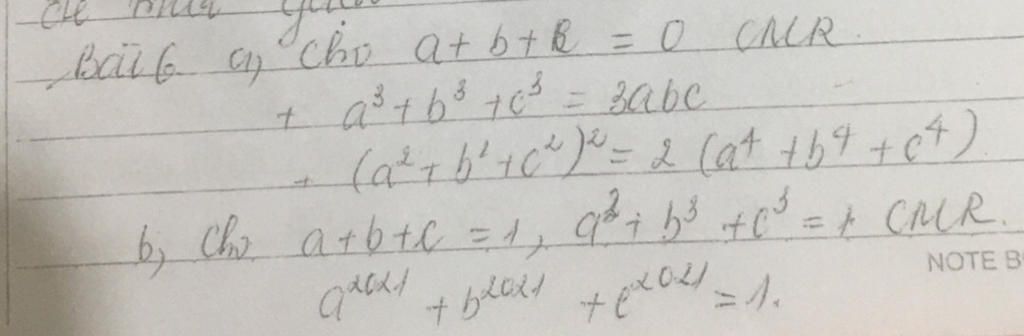 Bài 6. a, Cho a + b + c = 0 CMR.
+ a³ + b³ + c³ = 3abc
+ (a² + b² + c²)² = 2 (a⁴ + b⁴ + c⁴)
b, Cho a + b + c = 1, a³ + b³ + c³ = 1 CMR.
NOTE B
a²⁰²¹ + b²⁰²¹ + c²⁰²¹ = 1.